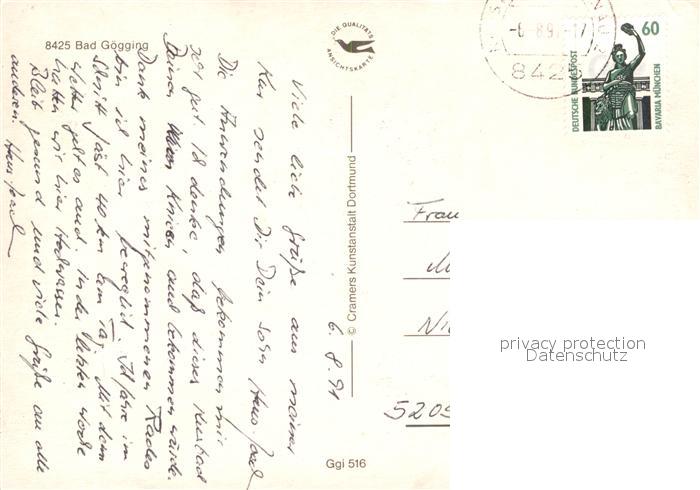 8425 Bad Gögging
DIE QUALITÄTS
ANSICHTSKARTE
6.8.91
Viele liebe Grüße aus meiner
Kur sendet Dir Dein Sohn Hans
Die Anwendungen bekommen mir
sehr gut. Ich denke, daß dieses Heilbad
Deinen Knien auch bekommen würde.
Dank meines mitgenommenen Rades
bin ich hier beweglich. Ich fahre im
Schnitt fast 40 km am Tag. Mit dem
Wetter geht es auch. In der letzten Woche
hatten wir hier Hochwasser.
Bleib gesund und viele Grüße an alle
anderen. Hans
© Cramers Kunstanstalt Dortmund
Ggi 516
-6.8.91-17
842
60
DEUTSCHE BUNDESPOST
BAVARIA MÜNCHEN
Frau
M
Ni
5205
privacy protection
Datenschutz